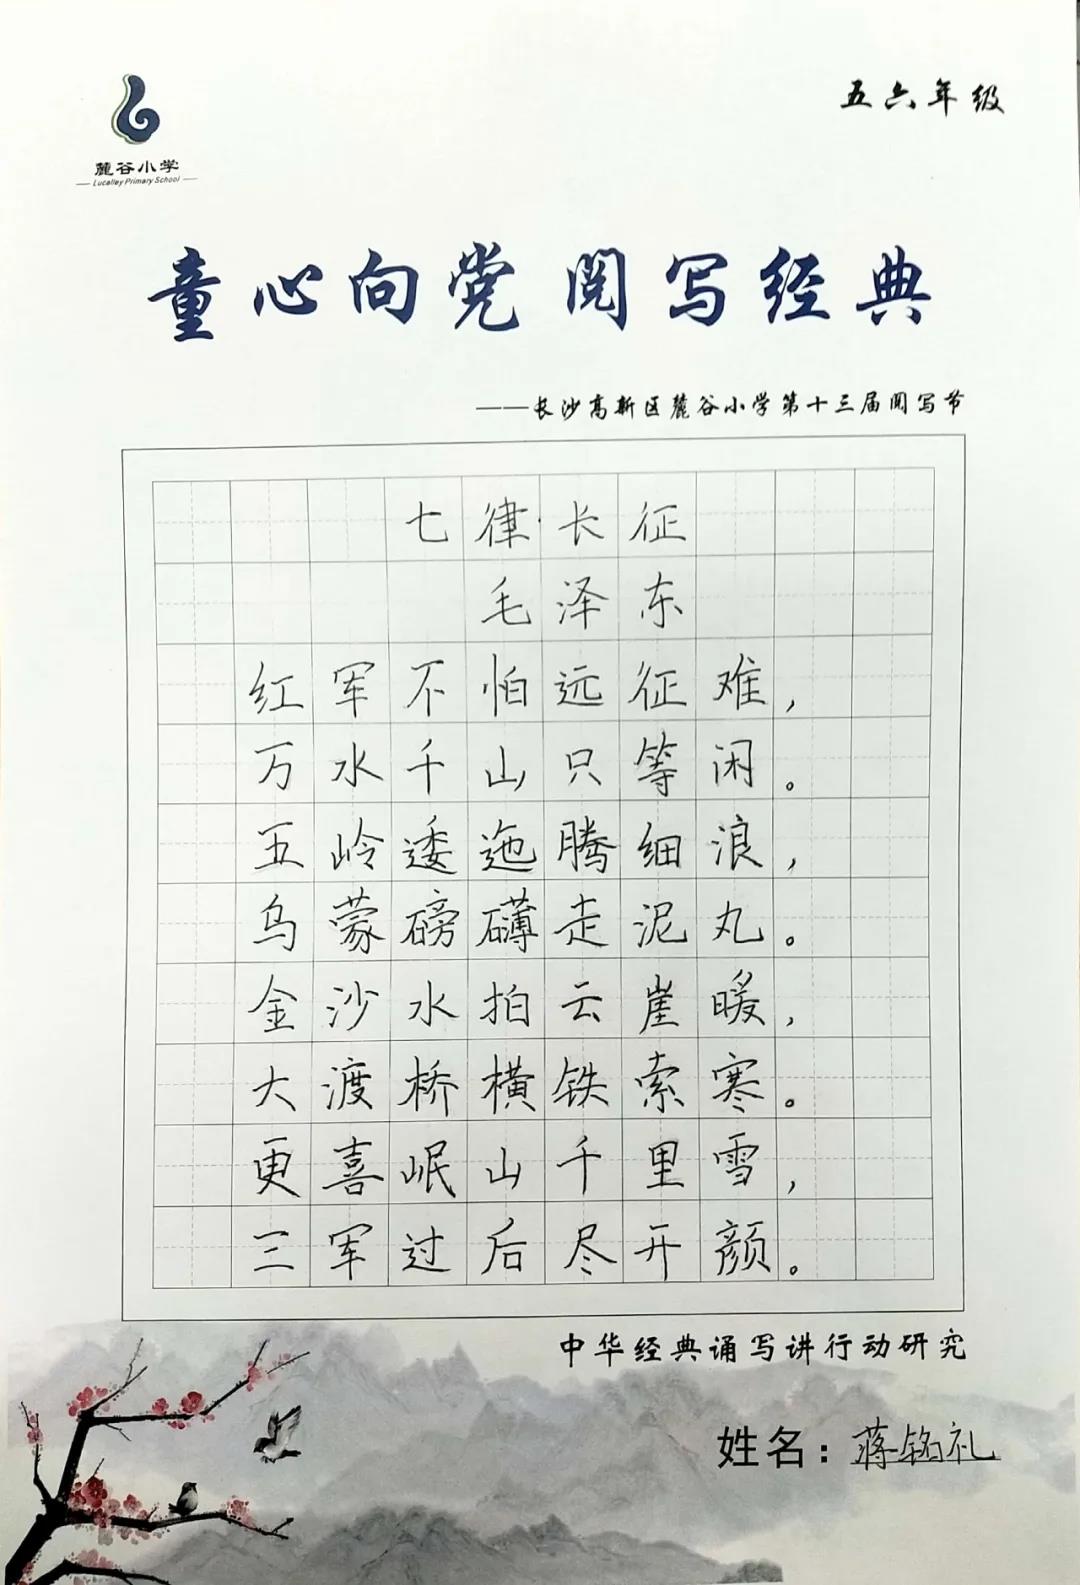 五六年级
麓谷小学
Lucalley Primary School
童心向党 阅写经典
——长沙高新区麓谷小学第十三届阅写节
七律·长征
毛泽东
红军不怕远征难，
万水千山只等闲。
五岭逶迤腾细浪，
乌蒙磅礴走泥丸。
金沙水拍云崖暖，
大渡桥横铁索寒。
更喜岷山千里雪，
三军过后尽开颜。
中华经典诵写讲行动研究
姓名：蒋铭礼